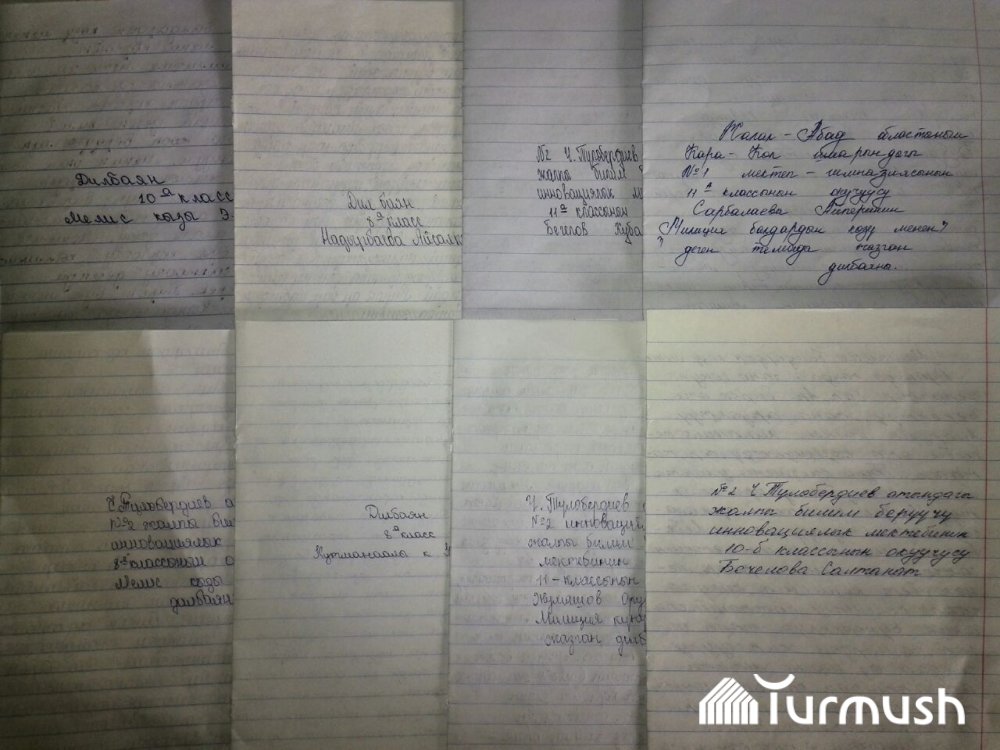 Дилбаян
10ᵃ класс
Мелис кызы Э
Дил баян
8ᵃ класс
№2 Ч.Тулобердиев
жалпы билим
инновациялык м
11ᵃ классынын
Жалал-Абад областынын
Кара-Кол шаарындагы
№1 мектеп-гимназиясынын
11ᵃ классынын окуучусу
Сарбалаева
"Милиция балдардын көзү менен"
деген темада жазган
дилбаяны.
Ч.Тулобердиев а
№2 жалпы бил
инновациялык
8ᵃ классынын о
Мелис кызы
дилбаян
Дилбаян
8ᵃ класс
Ч.Тулобердиев
№2 инновация
жалпы билим
мектебинин
11-классынын
Жумашов Ору
Милиция күнү
жазган дилб
№2 Ч.Тулобердиев атындагы
жалпы билим берүүчү
инновациялык мектебинин
10-б классынын окуучусу
Бочелова Салтанат
Turmush